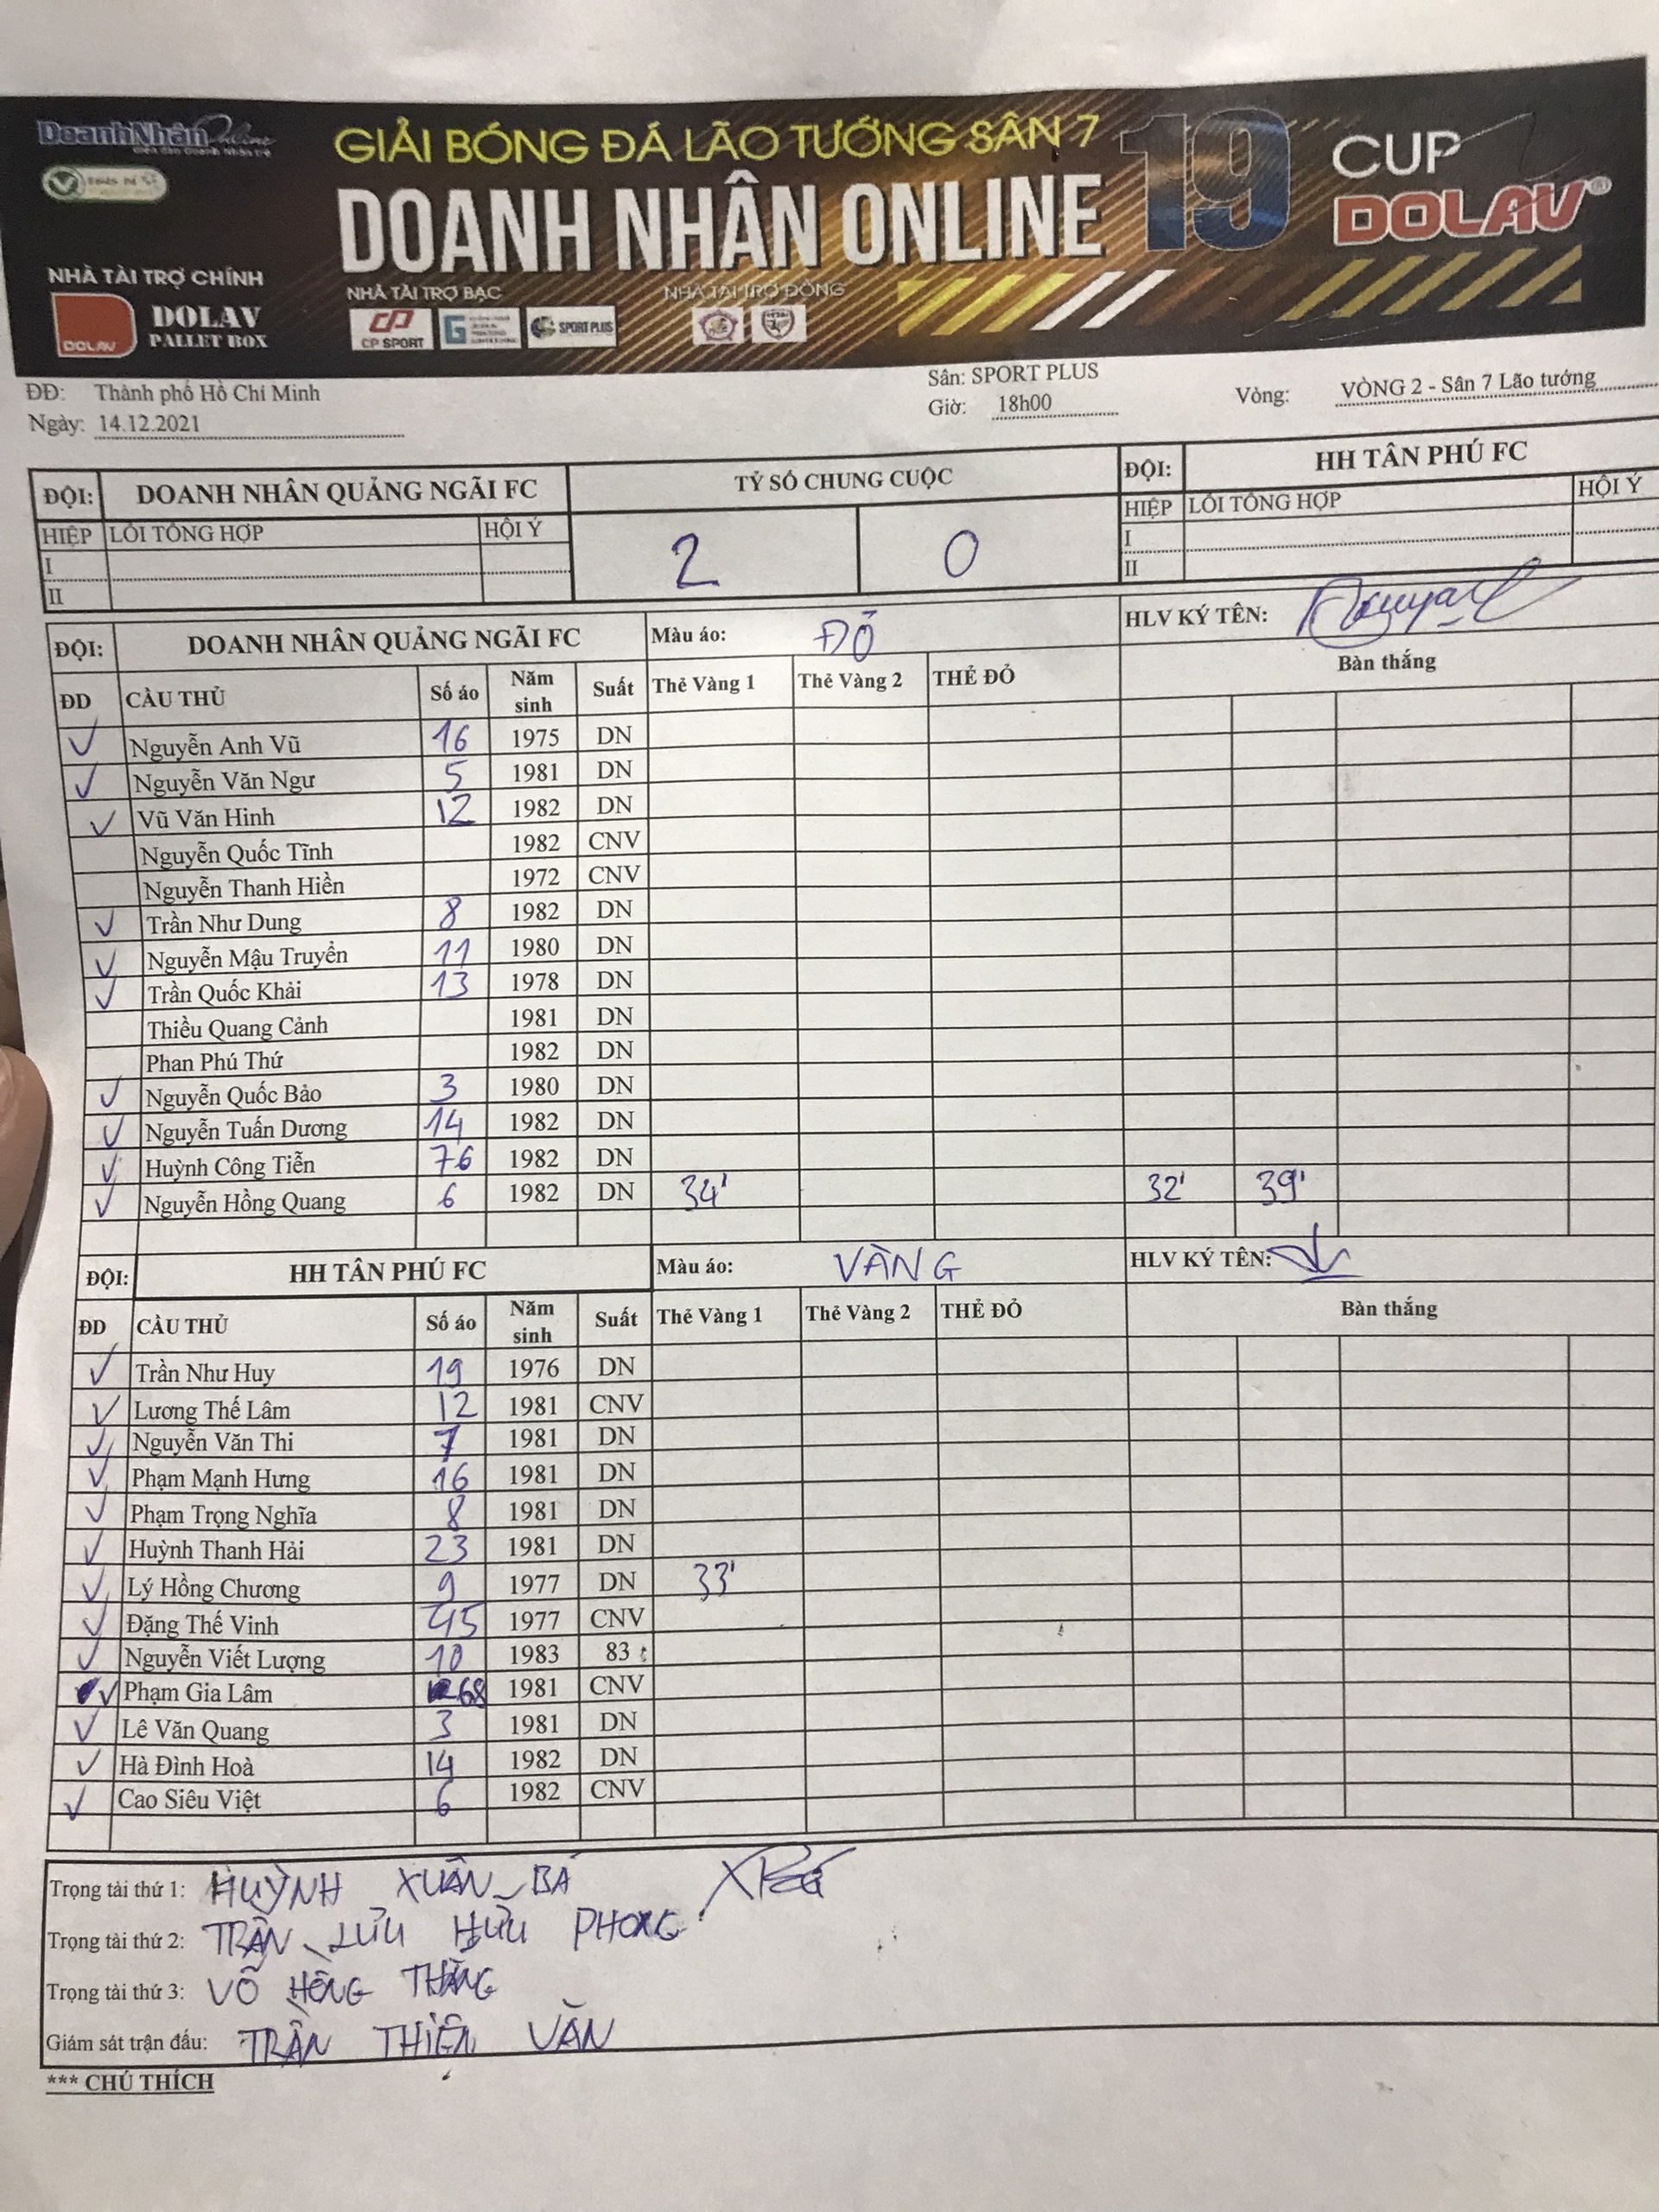 DoanhNhân Online
GIẢI BÓNG ĐÁ LÃO TƯỚNG SÂN 7
DOANH NHÂN ONLINE 19
CUP
DOLAV
NHÀ TÀI TRỢ CHÍNH
DOLAV
DOLAV
PALLET BOX
NHÀ TÀI TRỢ BẠC
CP SPORT
SPORT PLUS
NHÀ TÀI TRỢ ĐỒNG
ĐĐ: Thành phố Hồ Chí Minh
Ngày: 14.12.2021
Sân: SPORT PLUS
Giờ: 18h00
Vòng: VÒNG 2 - Sân 7 Lão tướng
ĐỘI: DOANH NHÂN QUẢNG NGÃI FC TỶ SỐ CHUNG CUỘC ĐỘI: HH TÂN PHÚ FC
HIỆP LỖI TỔNG HỢP HỘI Ý 2 0 HIỆP LỖI TỔNG HỢP HỘI Ý
I I
II II
ĐỘI: DOANH NHÂN QUẢNG NGÃI FC Màu áo: ĐỎ HLV KÝ TÊN:
ĐD CẦU THỦ Số áo Năm sinh Suất Thẻ Vàng 1 Thẻ Vàng 2 THẺ ĐỎ Bàn thắng
✓ Nguyễn Anh Vũ 16 1975 DN
✓ Nguyễn Văn Ngư 5 1981 DN
✓ Vũ Văn Hinh 12 1982 DN
Nguyễn Quốc Tĩnh 1982 CNV
Nguyễn Thanh Hiền 1972 CNV
✓ Trần Như Dung 8 1982 DN
✓ Nguyễn Mậu Truyển 11 1980 DN
✓ Trần Quốc Khải 13 1978 DN
Thiều Quang Cảnh 1981 DN
Phan Phú Thứ 1982 DN
✓ Nguyễn Quốc Bảo 3 1980 DN
✓ Nguyễn Tuấn Dương 14 1982 DN
✓ Huỳnh Công Tiễn 76 1982 DN
✓ Nguyễn Hồng Quang 6 1982 DN 34' 32' 39'
ĐỘI: HH TÂN PHÚ FC Màu áo: VÀNG HLV KÝ TÊN:
ĐD CẦU THỦ Số áo Năm sinh Suất Thẻ Vàng 1 Thẻ Vàng 2 THẺ ĐỎ Bàn thắng
✓ Trần Như Huy 19 1976 DN
✓ Lương Thế Lâm 12 1981 CNV
✓ Nguyễn Văn Thi 7 1981 DN
✓ Phạm Mạnh Hưng 16 1981 DN
✓ Phạm Trọng Nghĩa 8 1981 DN
✓ Huỳnh Thanh Hải 23 1981 DN
✓ Lý Hồng Chương 9 1977 DN 33'
✓ Đặng Thế Vinh 45 1977 CNV
✓ Nguyễn Viết Lượng 10 1983 83
✓ Phạm Gia Lâm 68 1981 CNV
✓ Lê Văn Quang 3 1981 DN
✓ Hà Đình Hoà 14 1982 DN
✓ Cao Siêu Việt 6 1982 CNV
Trọng tài thứ 1: HUỲNH XUÂN BÁ
Trọng tài thứ 2: TRẦN LƯU HỮU PHONG
Trọng tài thứ 3: VÕ HỒNG THẮNG
Giám sát trận đấu: TRẦN THIỆN VĂN
*** CHÚ THÍCH